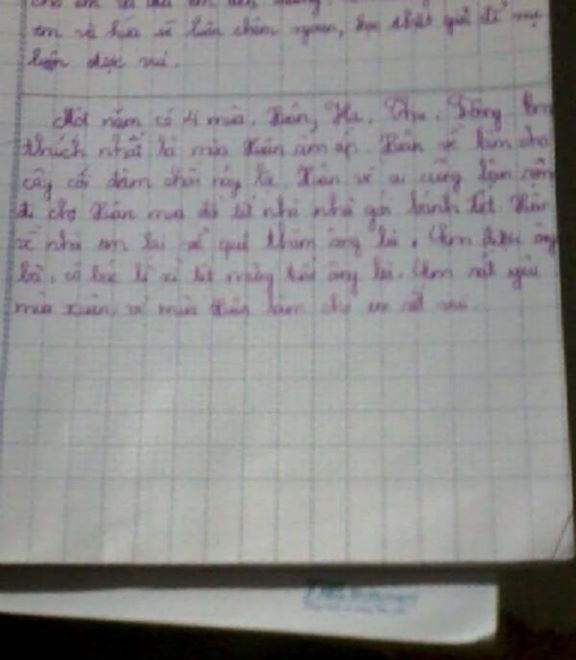 em và hứa sẽ luôn chăm ngoan, học thật giỏi để mẹ
luôn được vui.
Một năm có 4 mùa. Xuân, Hạ, Thu, Đông Em
thích nhất là mùa Xuân ấm áp. Xuân về làm cho
cây cối đâm chồi nảy lộc. Xuân về ai cũng bận rộn
đi chợ Xuân mua đồ tết nhà nhà gói bánh tét. Xuân
về nhà em lại về quê thăm ông bà. Em được ông
bà, cô bác lì xì tết mừng tuổi ông bà. Em rất yêu
mùa xuân, vì mùa Xuân làm cho em rất vui.